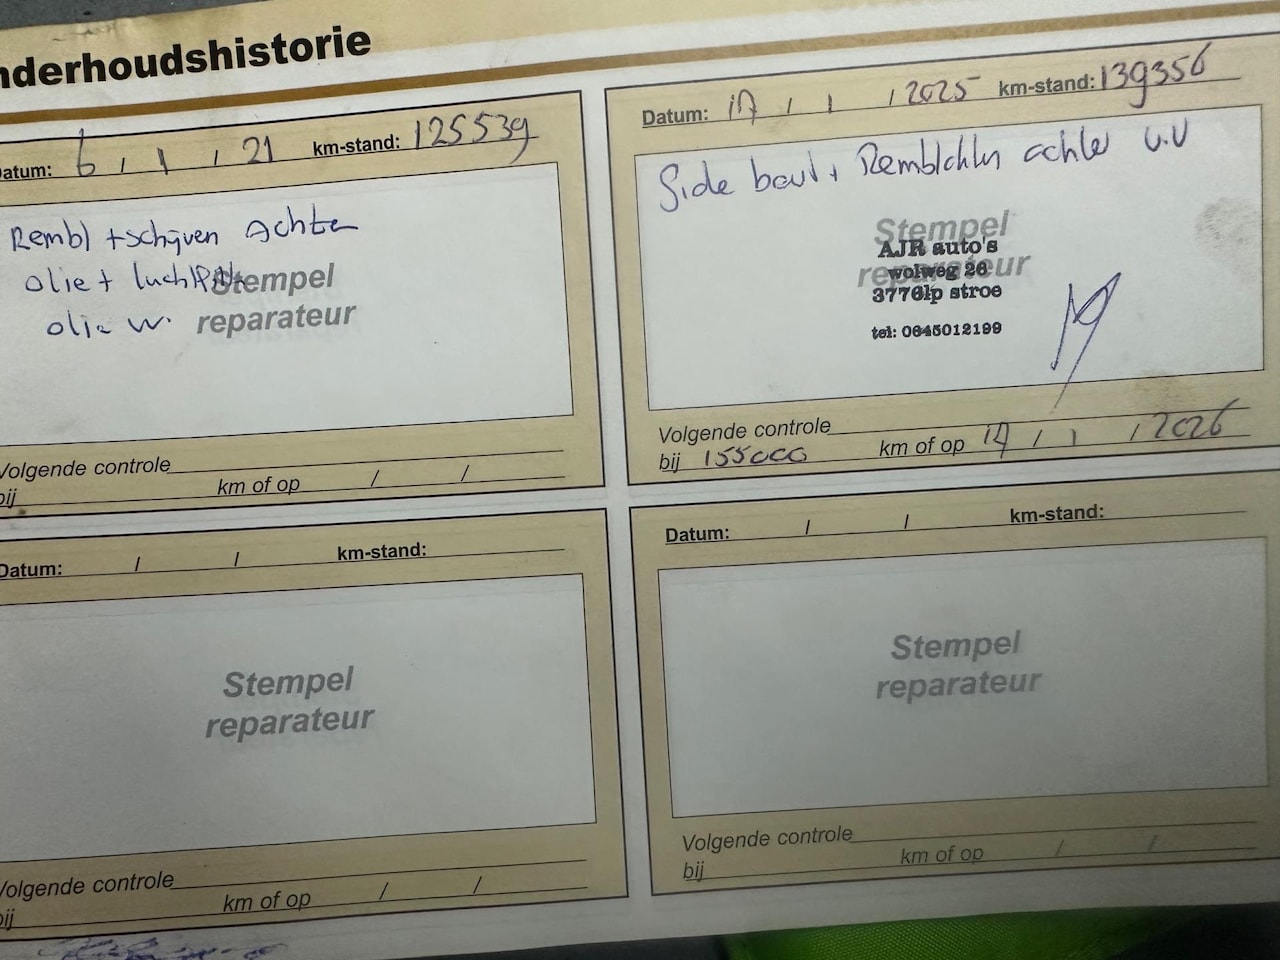 nderhoudshistorie
atum: 6 / 1 / 21 km-stand: 125539
Rembl + schijven achter
olie + luchtfilt
olie w.
Stempel
reparateur
Volgende controle
bij km of op / /
Datum: / 1 / 2025 km-stand: 139356
Side bout + achter v.v
Stempel
reparateur
AJR auto's
wolweg 26
3776lp stroe
tel: 0645012199
Volgende controle
bij 155000 km of op / 1 / 2026
Datum: / / km-stand:
Stempel
reparateur
Volgende controle
bij km of op / /
Datum: / / km-stand:
Stempel
reparateur
Volgende controle
bij km of op / /